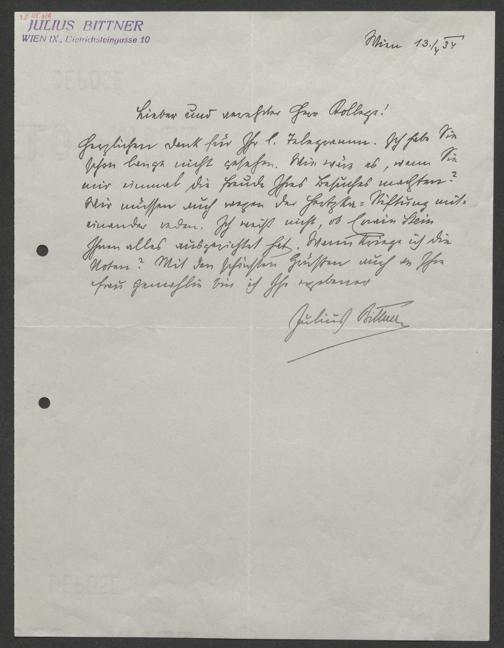 JULIUS BITTNER
WIEN IX., Dietrichsteingasse 10
Wien 13./ 34
Lieber und verehrter Herr Kollege!
Herzlichen Dank für Ihr l. Telegramm. Ich habe Sie
schon lange nicht gesehen. Wie wäre es, wenn Sie
mir einmal die Freude Ihres Besuches machten?
Wir müssen auch wegen der Hertzka-Stiftung mit-
einander reden. Ich weiß nicht, ob Erwin Stein
Ihnen alles ausgerichtet hat. Wann kriege ich die
Noten? Mit den schönsten Grüßen auch an Ihre
Frau Gemahlin bin ich Ihr ergebener
Julius Bittner